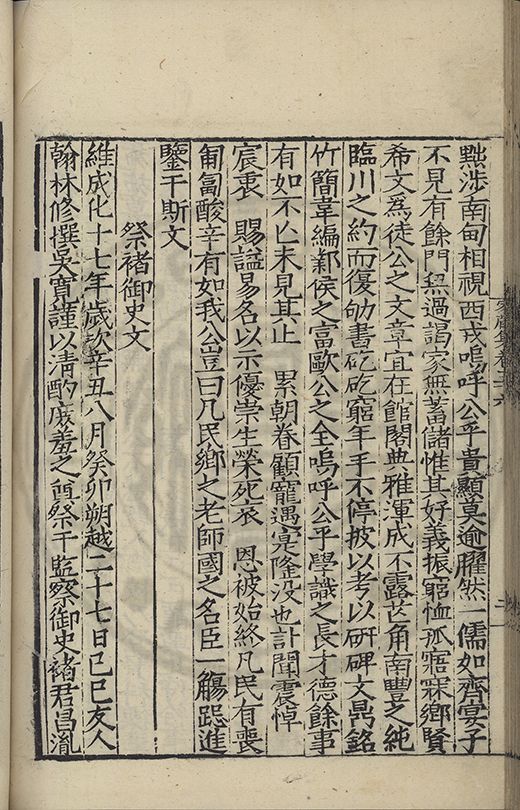 黜渉南甸相視西戎嗚呼公乎貴顯莫逾臞然一儒如齊宴子
不見有餘門無過謁家無蓄儲惟其好義振窮恤孤寤寐鄉賢
希文爲徒公之文章宜在館閣典雅渾成不露芒角南豐之純
臨川之約而復劬書矻矻窮年手不停披以考以研碑文鼎銘
竹簡韋編鄴侯之富歐公之全嗚呼公乎學識之長才德餘事
有如不亾未見其止 累朝眷顧寵遇寔隆没也訃聞震悼
宸衷 賜謚易名以示優崇生榮死哀 恩被始終凡民有喪
匍匐酸辛有如我公豈曰凡民鄉之老師國之名臣一觴跽進
鑒于斯文
祭褚御史文
維成化十七年歲次辛丑八月癸卯朔越二十七日己巳友人
翰林修撰吳寬謹以清酌庶羞之奠祭于監察御史褚君昌胤